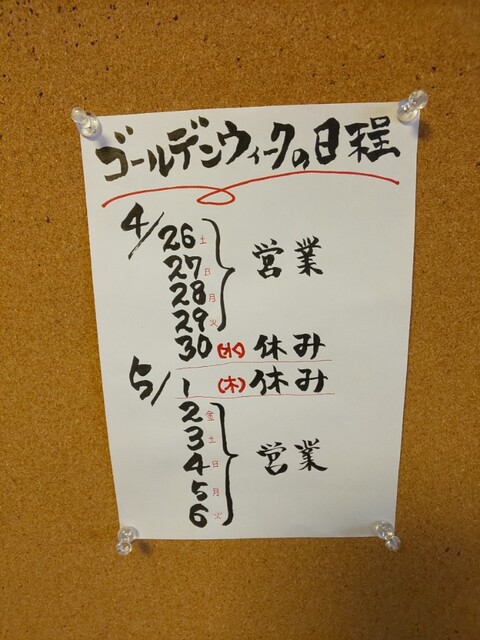 ゴールデンウィークの日程
4/26 土
27 日 営業
28 月
29 火
30 (水) 休み
5/1 (木) 休み
2 金
3 土
4 日 営業
5 月
6 火